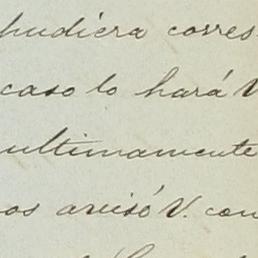 pudiera corres
caso lo hará V
ultimamente
os avisó V. con